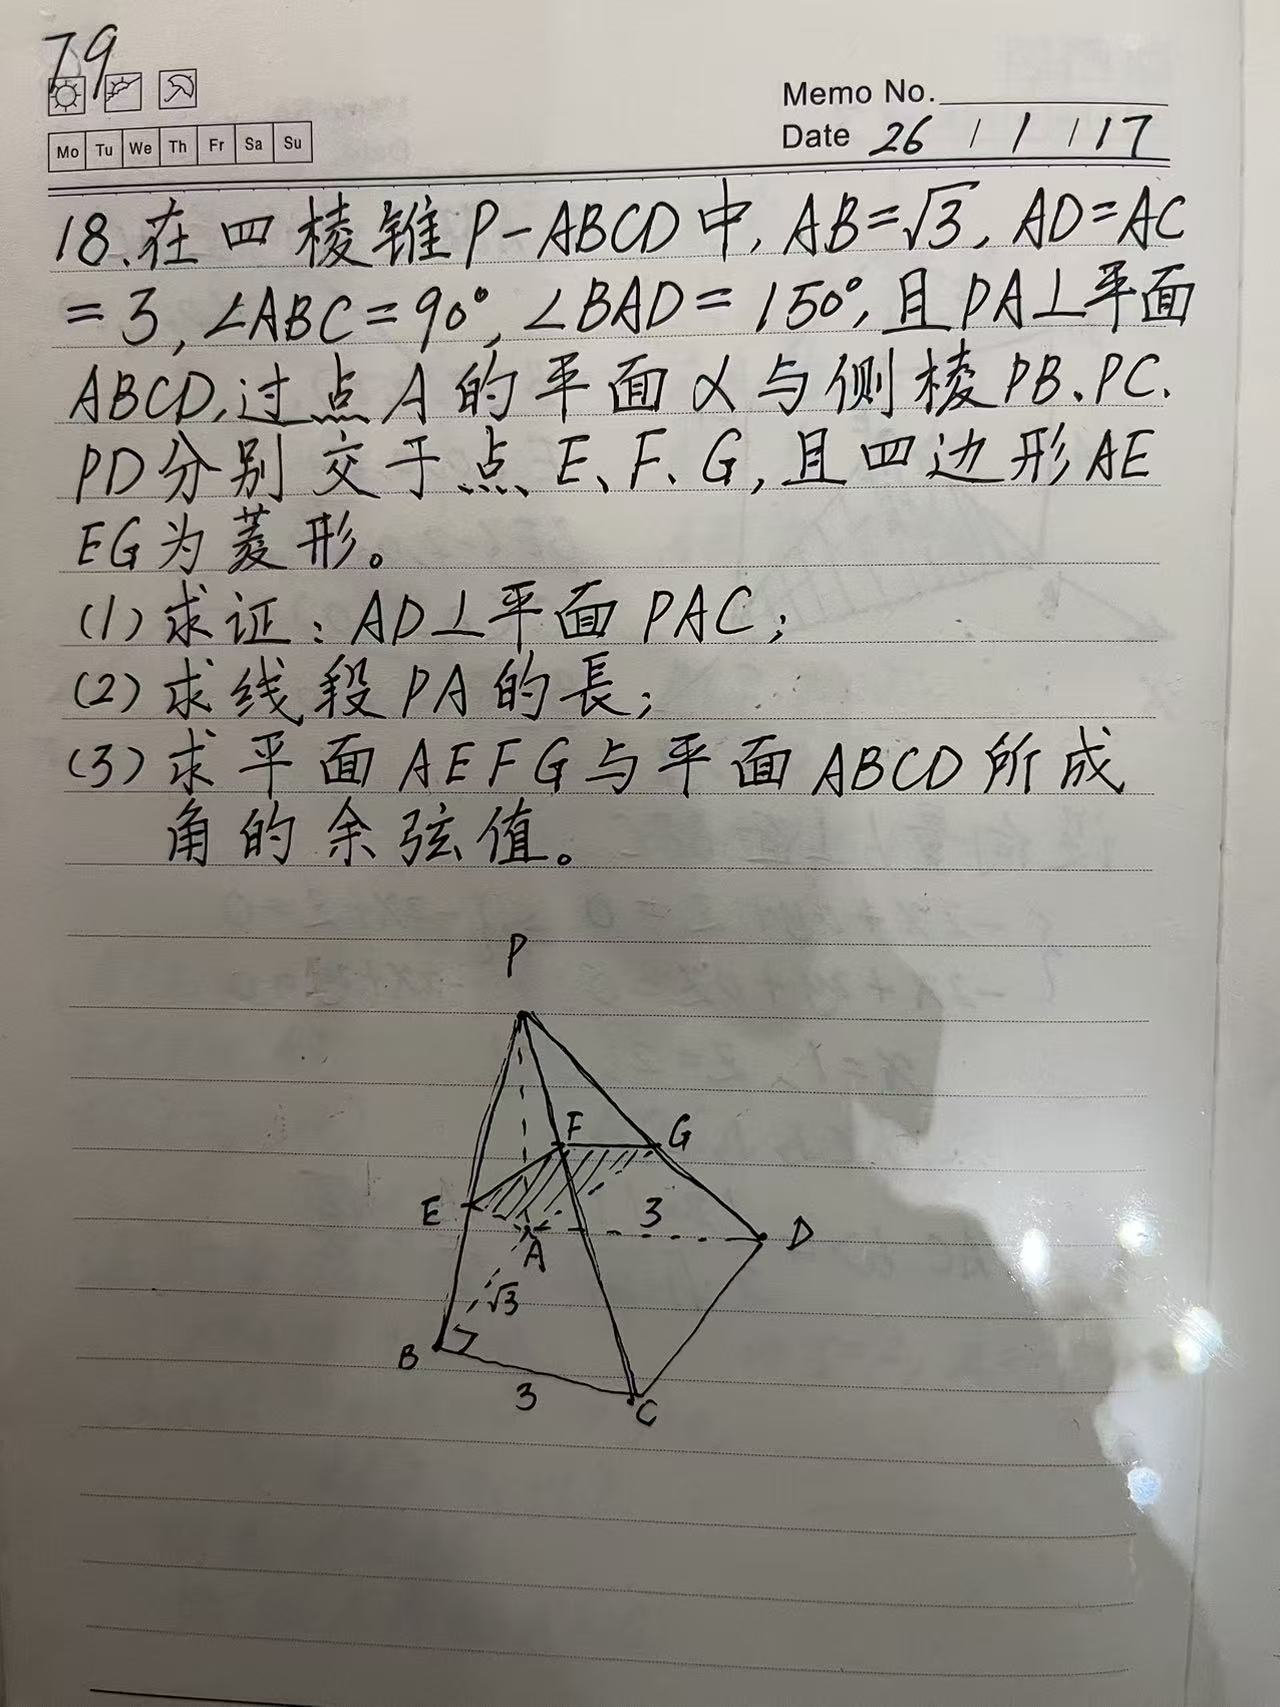 79
Memo No.
Mo Tu We Th Fr Sa Su
Date 26 / 1 / 17
18.在四棱锥P-ABCD中, AB=√3, AD=AC
=3, ∠ABC=90°, ∠BAD=150°, 且PA⊥平面
ABCD,过点A的平面α与侧棱PB、PC、
PD分别交于点E、F、G,且四边形AE
EG为菱形。
(1)求证:AD⊥平面PAC;
(2)求线段PA的長;
(3)求平面AEFG与平面ABCD所成
角的余弦值。
P
F G
E 3
A D
√3
B
3
C